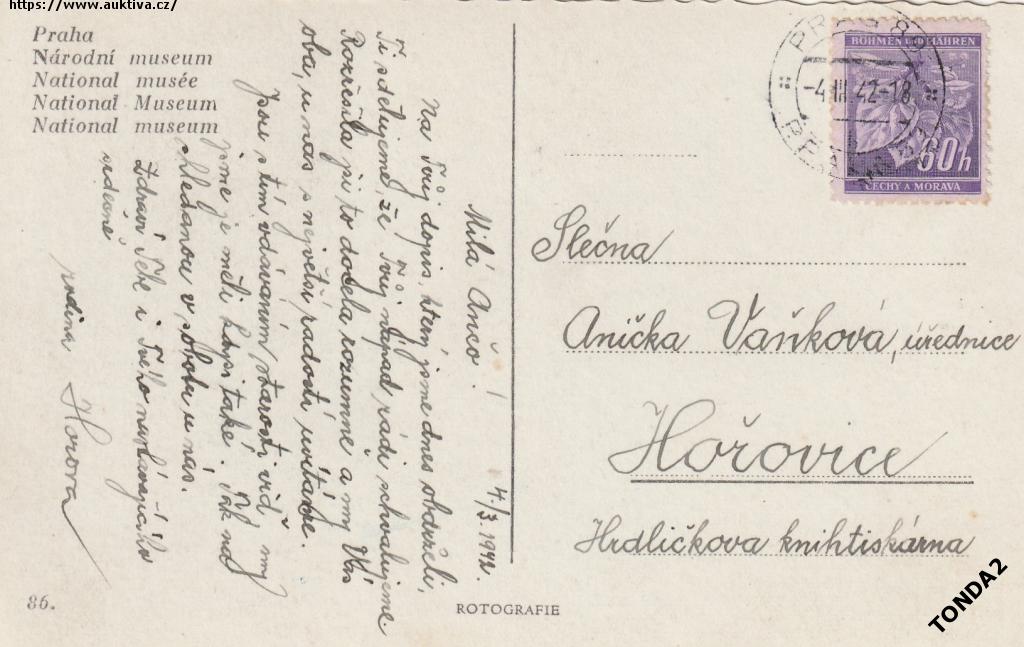 https://www.auktiva.cz/
Praha
Národní museum
National musée
National Museum
National museum
Milá Ančo! 4./3. 1942.
Na Tvůj dopis, který jsme dnes obdrželi,
Ti sdělujeme, že Tvůj nápad rádi schvalujeme.
Rozřešila jsi to docela rozumně a my Vás
oba u nás s největší radostí uvítáme.
Jsou s tím vdáváním starosti viď my
jsme je měli kdysi také. Tak na
shledanou v sobotu u nás.
Zdraví Tebe i Tvého nastávajícího
srdečně
rodina Horova
86.
ROTOGRAFIE
BÖHMEN UND MÄHREN
60h
ČECHY A MORAVA
-4.III.42-18
Slečna
Anička Vaňková, úřednice
Hořovice
Hrdličkova knihtiskárna
TONDA2